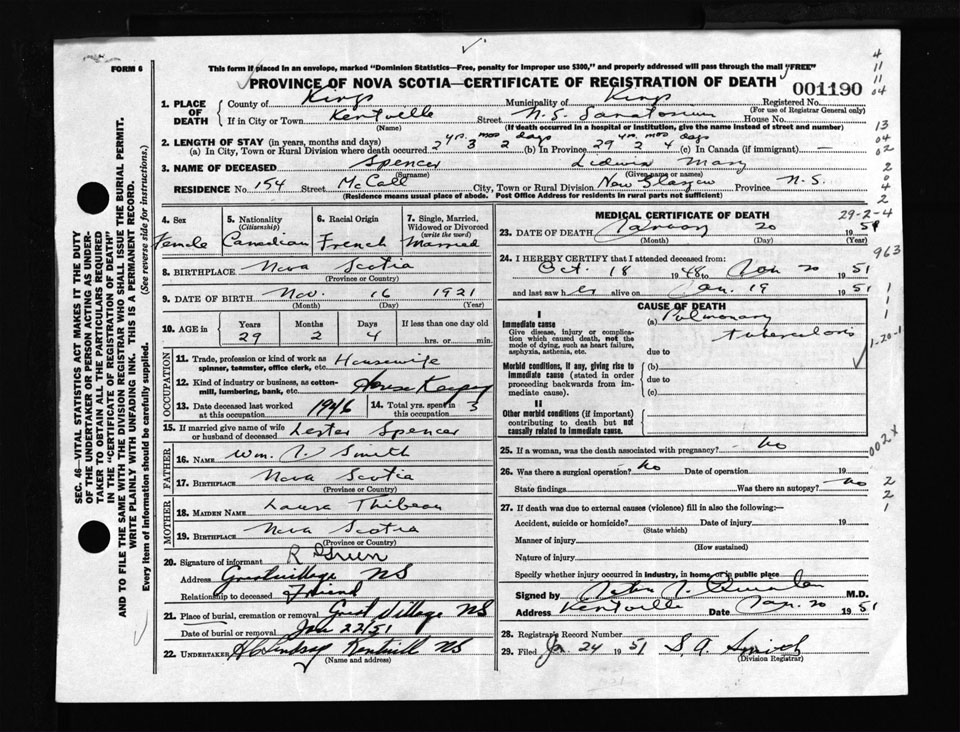 FORM 6
This form if placed in an envelope, marked "Dominion Statistics—Free, penalty for improper use $300," and properly addressed will pass through the mail "FREE"
PROVINCE OF NOVA SCOTIA—CERTIFICATE OF REGISTRATION OF DEATH
001190
1. PLACE OF DEATH
County of Kings Municipality of Kings Registered No.
(For use of Registrar General only)
If in City or Town Kentville Street N.S. Sanatorium House No.
(Name) (If death occurred in a hospital or institution, give the name instead of street and number)
2. LENGTH OF STAY (in years, months and days)
(a) In City, Town or Rural Division where death occurred 2 yr. 3 mos 2 days (b) In Province 29 yr. 2 mos 4 days (c) In Canada (if immigrant) —
3. NAME OF DECEASED Spencer Ludwin Mary
(Surname) (Given name or names)
RESIDENCE No. 154 Street McCall City, Town or Rural Division New Glasgow Province N.S.
(Residence means usual place of abode. Post Office Address for residents in rural parts not sufficient)
4. Sex Female
5. Nationality (Citizenship) Canadian
6. Racial Origin French
7. Single, Married, Widowed or Divorced (write the word) Married
8. BIRTHPLACE Nova Scotia
(Province or Country)
9. DATE OF BIRTH Nov. 16 1921
(Month) (Day) (Year)
10. AGE in Years 29 Months 2 Days 4 If less than one day old hrs. or min.
OCCUPATION
11. Trade, profession or kind of work as spinner, teamster, office clerk, etc. Housewife
12. Kind of industry or business, as cotton-mill, lumbering, bank, etc. House Keeping
13. Date deceased last worked at this occupation 1946
14. Total yrs. spent in this occupation 3
15. If married give name of wife or husband of deceased Lester Spencer
FATHER
16. NAME Wm. Smith
17. BIRTHPLACE Nova Scotia
(Province or Country)
MOTHER
18. MAIDEN NAME Laura Thibeau
19. BIRTHPLACE Nova Scotia
(Province or Country)
20. Signature of informant R
Address Great Village NS
Relationship to deceased friend
21. Place of burial, cremation or removal Great Village NS
Date of burial or removal Jan 22/51
22. UNDERTAKER H Lindsay Kentville NS
(Name and address)
MEDICAL CERTIFICATE OF DEATH
23. DATE OF DEATH January 20 1951
(Month) (Day) (Year)
24. I HEREBY CERTIFY that I attended deceased from:
Oct. 18 1948 to Jan 20 1951
and last saw her alive on Jan. 19 1951
CAUSE OF DEATH
I
Immediate cause
Give disease, injury or complication which caused death, not the mode of dying, such as heart failure, asphyxia, asthenia, etc.
(a) Pulmonary tuberculosis
due to
Morbid conditions, if any, giving rise to immediate cause (stated in order proceeding backwards from immediate cause).
(b)
due to
(c)
II
Other morbid conditions (if important) contributing to death but not causally related to immediate cause.
25. If a woman, was the death associated with pregnancy? No
26. Was there a surgical operation? No Date of operation 19
State findings Was there an autopsy? No
27. If death was due to external causes (violence) fill in also the following:—
Accident, suicide or homicide? Date of injury 19
(State which)
Manner of injury
(How sustained)
Nature of injury
Specify whether injury occurred in industry, in home, or in public place
Signed by M.D.
Address Kentville Date Jan. 20 1951
28. Registrar's Record Number
29. Filed Jan 24 1951 S. A. Smith
(Division Registrar)
SEC. 46—VITAL STATISTICS ACT MAKES IT THE DUTY OF THE UNDERTAKER OR PERSON ACTING AS UNDERTAKER TO OBTAIN ALL THE PARTICULARS REQUIRED IN THE "CERTIFICATE OF REGISTRATION OF DEATH" AND TO FILE THE SAME WITH THE DIVISION REGISTRAR WHO SHALL ISSUE THE BURIAL PERMIT.
WRITE PLAINLY WITH UNFADING INK. THIS IS A PERMANENT RECORD.
Every item of information should be carefully supplied. (See reverse side for instructions.)
4
11
11
04
13
04
02
2
0
4
2
29-2-4
963
1
1
1
1-20-1
002X
2
2
1